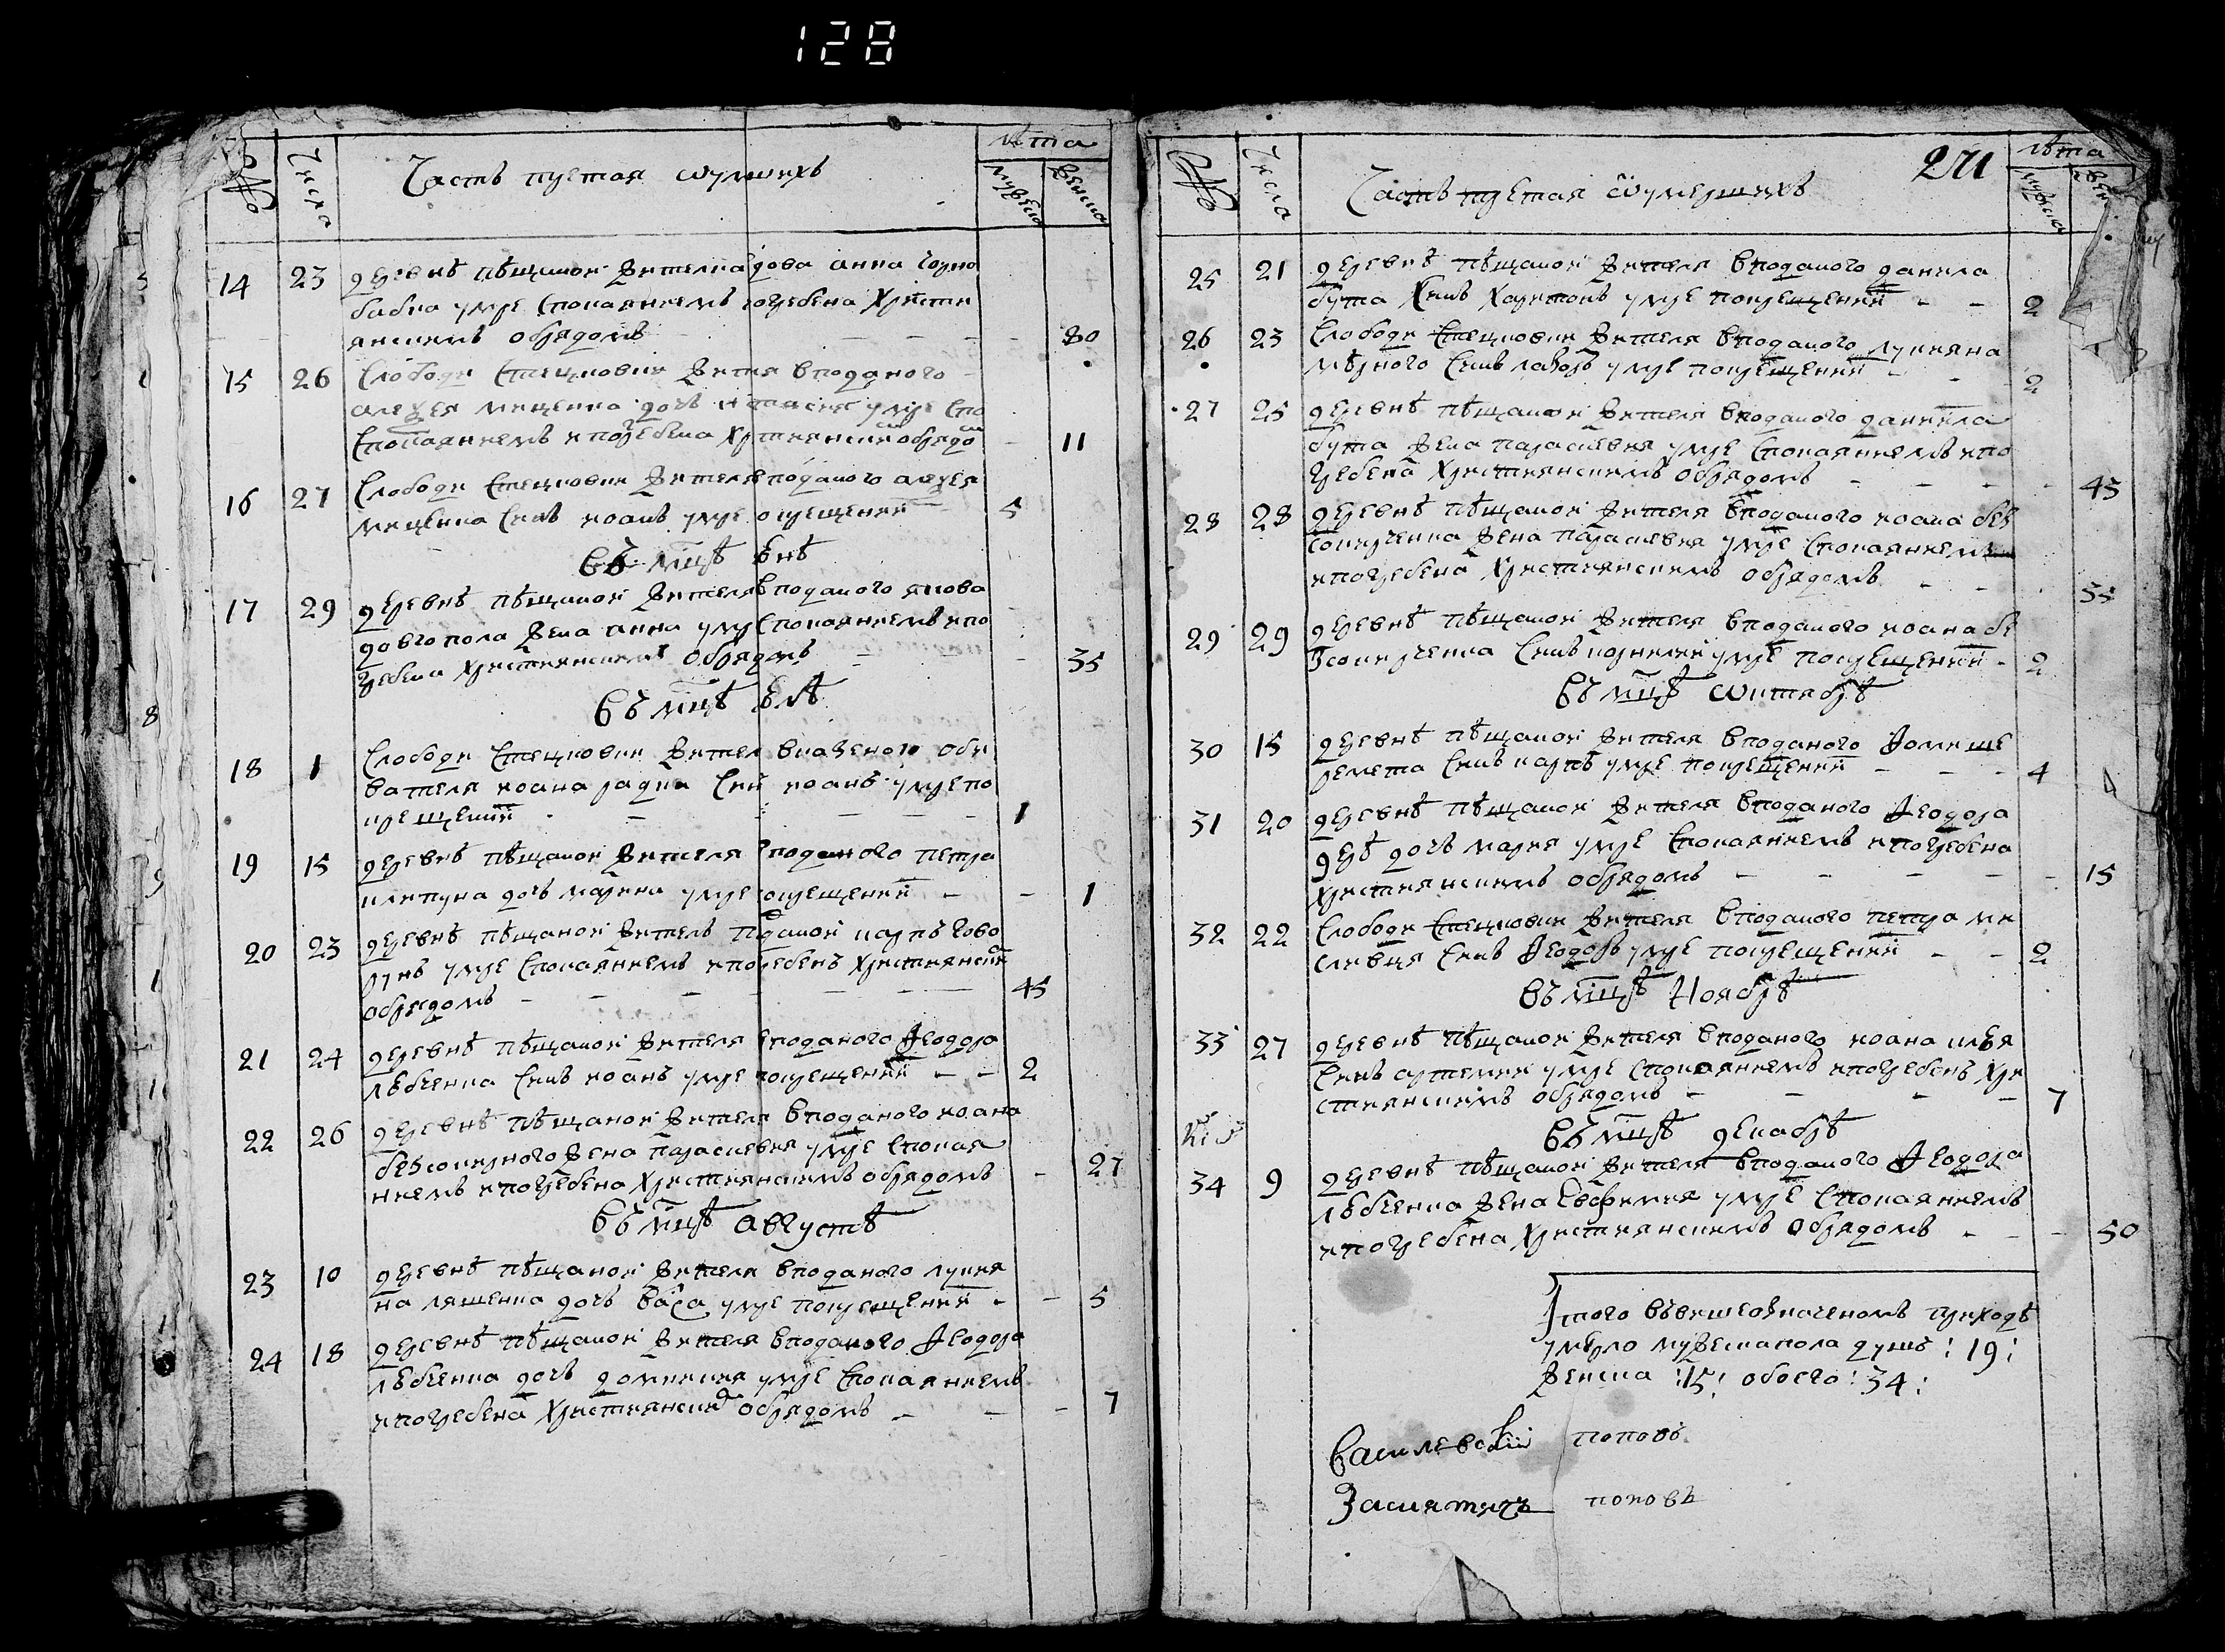 128
лѣта
№ Числа Часть третая о умших мужеска женска
14 23 деревнѣ пѣщаной жителка вдова анна чорно
бабка умре споканиемъ погребена христи
анскимъ обрядомъ 80
15 26 Слободи Стецковки жителя вподаного
алеѯея мищенка дочь умре спо
Спопаяниемъ и погребена хртиянским обрядом 11
16 27 Слободи Стецковки жителя вподаного алеѯея
мищенка синъ иоанъ умре покрещении 5
Въ мцѣ юнѣ
17 29 деревнѣ пѣщаной жителя вподаного якова
довгопола жена анна умре споканиемъ и по
гребена християнскимъ обрядомъ 35
Въ мцѣ юлѣ
18 1 Слободи Стецковки жител вказеного оби
вателя иоана радка синъ иоанъ умре по
крещении 1
19 15 деревнѣ пѣщаной жителя вподаного петра
клепуна дочь марина умре покрещении 1
20 23 деревнѣ пѣщаной житель подданой карпъ гово
рунъ умре споканиемъ и погребенъ християнским
обрядомъ 45
21 24 деревнѣ пѣщаной жителя вподаного Ѳеодора
лѣбченка синъ иоанъ умре покрещении 2
22 26 деревнѣ пѣщаной жителя вподаного иоана
безсокирного жена параскевия умре спокая
ниемъ и погребена християнскимъ обрядомъ 27
Въ мцѣ августѣ
23 10 деревнѣ пѣщаной жителя вподаного лукия
на ляшенка дочь вара умре покрещении 5
24 18 деревнѣ пѣщаной жителя вподаного Ѳеодора
лѣбченка дочь домникия умре спокаяниемъ
и погребена християнским обрядомъ 7
271
лѣта
№ Числа Часть третая о умершихъ мужеска жен
25 21 деревнѣ пѣщаной жителя вподаного данила
бута синъ харитонъ умре покрещении 2
26 23 Слободи Стецковки жителя вподаного лукияна
мѣрного синъ лазоръ умре покрещении 2
27 25 деревнѣ пѣщаной жителя вподаного даниила
бута жена параскевия умре спокаяниемъ и по
гребена християнскимъ обрядомъ 45
28 28 деревнѣ пѣщаной жителя вподаного иоана без
сокирченка жена параскевия умре спокаяниемъ
и погребена християнскимъ обрядомъ 35
29 29 деревнѣ пѣщаной жителя вподаного иоана бе
зсокирченка синъ корнилий умре покрещении 2
Въ мцѣ октябрѣ
30 15 деревнѣ пѣщаной жителя вподаного Ѳоми ше
ремета синъ карпъ умре покрещении 4
31 20 деревнѣ пѣщаной жителя вподаного Ѳеодора
дочь мария умре спокаяниемъ и погребена
християнскимъ обрядомъ 15
32 22 Слободи Стецковки жителя вподаного петра ми
сливця синъ Ѳеодоръ умре покрещении 2
Въ мцѣ Ноябрѣ
33 27 деревнѣ пѣщаной жителя вподаного иоана
синъ артемий умре спокаяниемъ и погребенъ хри
стиянскимъ обрядомъ 7
Въ мцѣ декабрѣ
34 9 деревнѣ пѣщаной жителя вподаного Ѳеодора
лѣбченка жена Евфимия умре спокаяниемъ
и погребена християнскимъ обрядомъ 50
Итого въвишеозначеномъ приходѣ
умерло мужеска пола душъ : 19 :
женска : 15 : обоего : 34 :
Василевский поповъ
поповъ